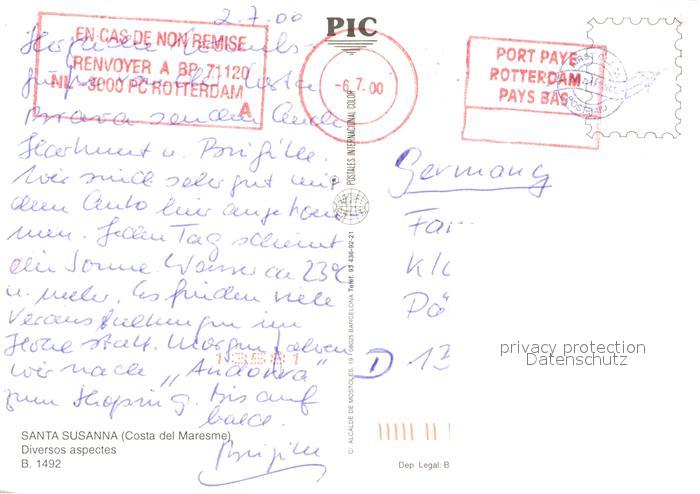 2.7.00
PIC
EN CAS DE NON REMISE
RENVOYER A BP 71120
NL - 3000 PC ROTTERDAM
A
-6.7.00
PORT PAYE
ROTTERDAM
PAYS BAS
Herzliche Urlaubs-
grüße von der Costa
Brava senden Euch
Hartmut u. Brigitte.
Wir sind sehr gut mit
dem Auto hier angekom
men. Jeden Tag scheint
die Sonne. Wasser ca 23°C
u. mehr. Es finden viele
Veranstaltungen im
Hotel statt. Morgen fahren
wir nach "Andorra"
zum Shoping. Bis auf
bald.
Brigitte
SANTA SUSANNA (Costa del Maresme)
Diversos aspectes
B. 1492
POSTALES INTERNACIONAL COLOR
C/. ALCALDE DE MOSTOLES, 19 08025 BARCELONA Telef. 93 436-92-21
Germany
Far
Kl
Pä
D 13
privacy protection
Datenschutz
Dep. Legal: B